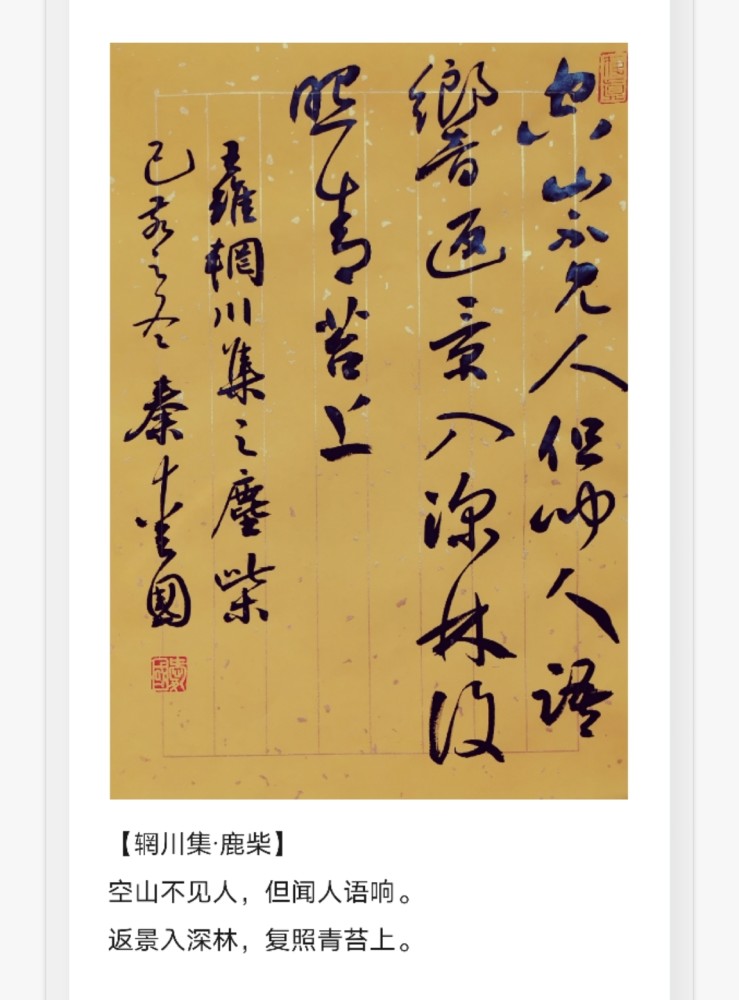 空山不見人但聞人語
響返景入深林復
照青苔上
王維輞川集之麈柴
己亥之冬 秦 國
【辋川集·鹿柴】
空山不见人，但闻人语响。
返景入深林，复照青苔上。